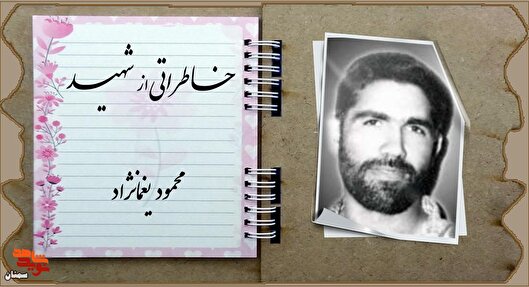 خاطراتی از شهید
محمود یغمانژاد
نوید شاهد
سمنان